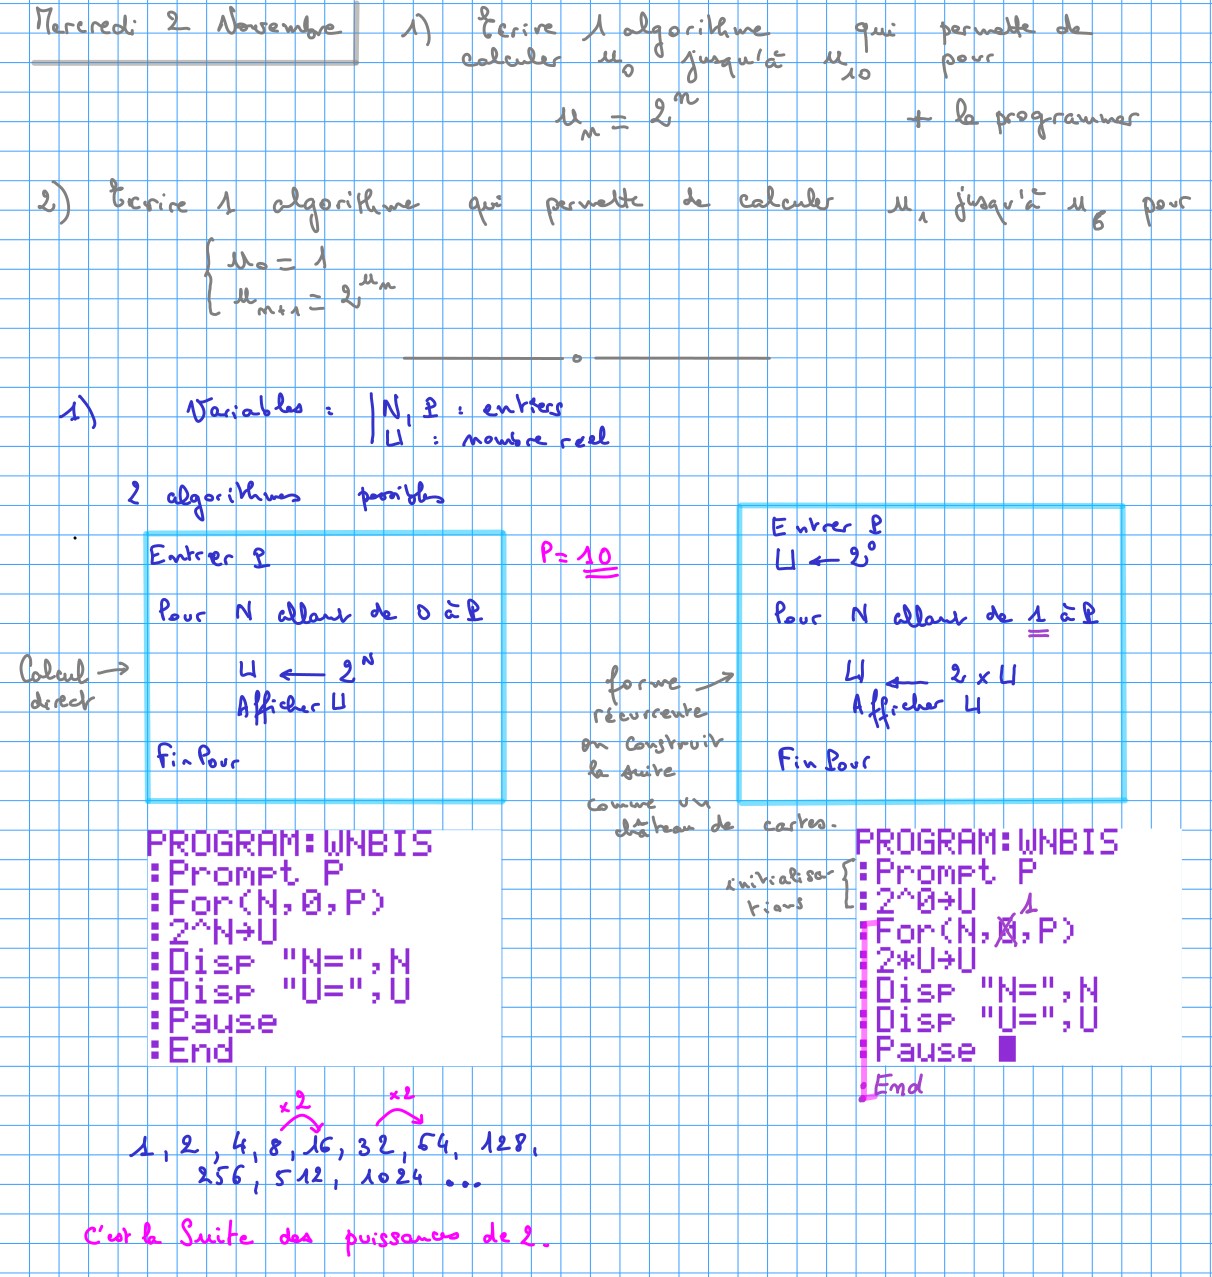 Mercredi 2 Novembre
1) Ecrire 1 algorithme qui permette de
calculer u₀ jusqu'à u₁₀ pour
uₙ = 2ⁿ + le programmer
2) Ecrire 1 algorithme qui permette de calculer u₁ jusqu'à u₆ pour
{ u₀ = 1
uₙ₊₁ = 2^uₙ
1) Variables : | N, P : entiers
U : nombre réel
2 algorithmes possibles
Entrer P
Pour N allant de 0 à P
U ← 2^N
Afficher U
Fin Pour
Calcul direct →
P = 10
Entrer P
U ← 2⁰
Pour N allant de 1 à P
U ← 2 × U
Afficher U
Fin Pour
forme →
récurrente
on construit
la suite
comme un
château de cartes.
PROGRAM:WNBIS
:Prompt P
:For(N,0,P)
:2^N→U
:Disp "N=",N
:Disp "U=",U
:Pause
:End
initialisa-
tions
PROGRAM:WNBIS
:Prompt P
:2^0→U
1
:For(N,0,P)
:2*U→U
:Disp "N=",N
:Disp "U=",U
:Pause
End
×2 ×2
1, 2, 4, 8, 16, 32, 64, 128,
256, 512, 1024 ...
C'est la Suite des puissances de 2.